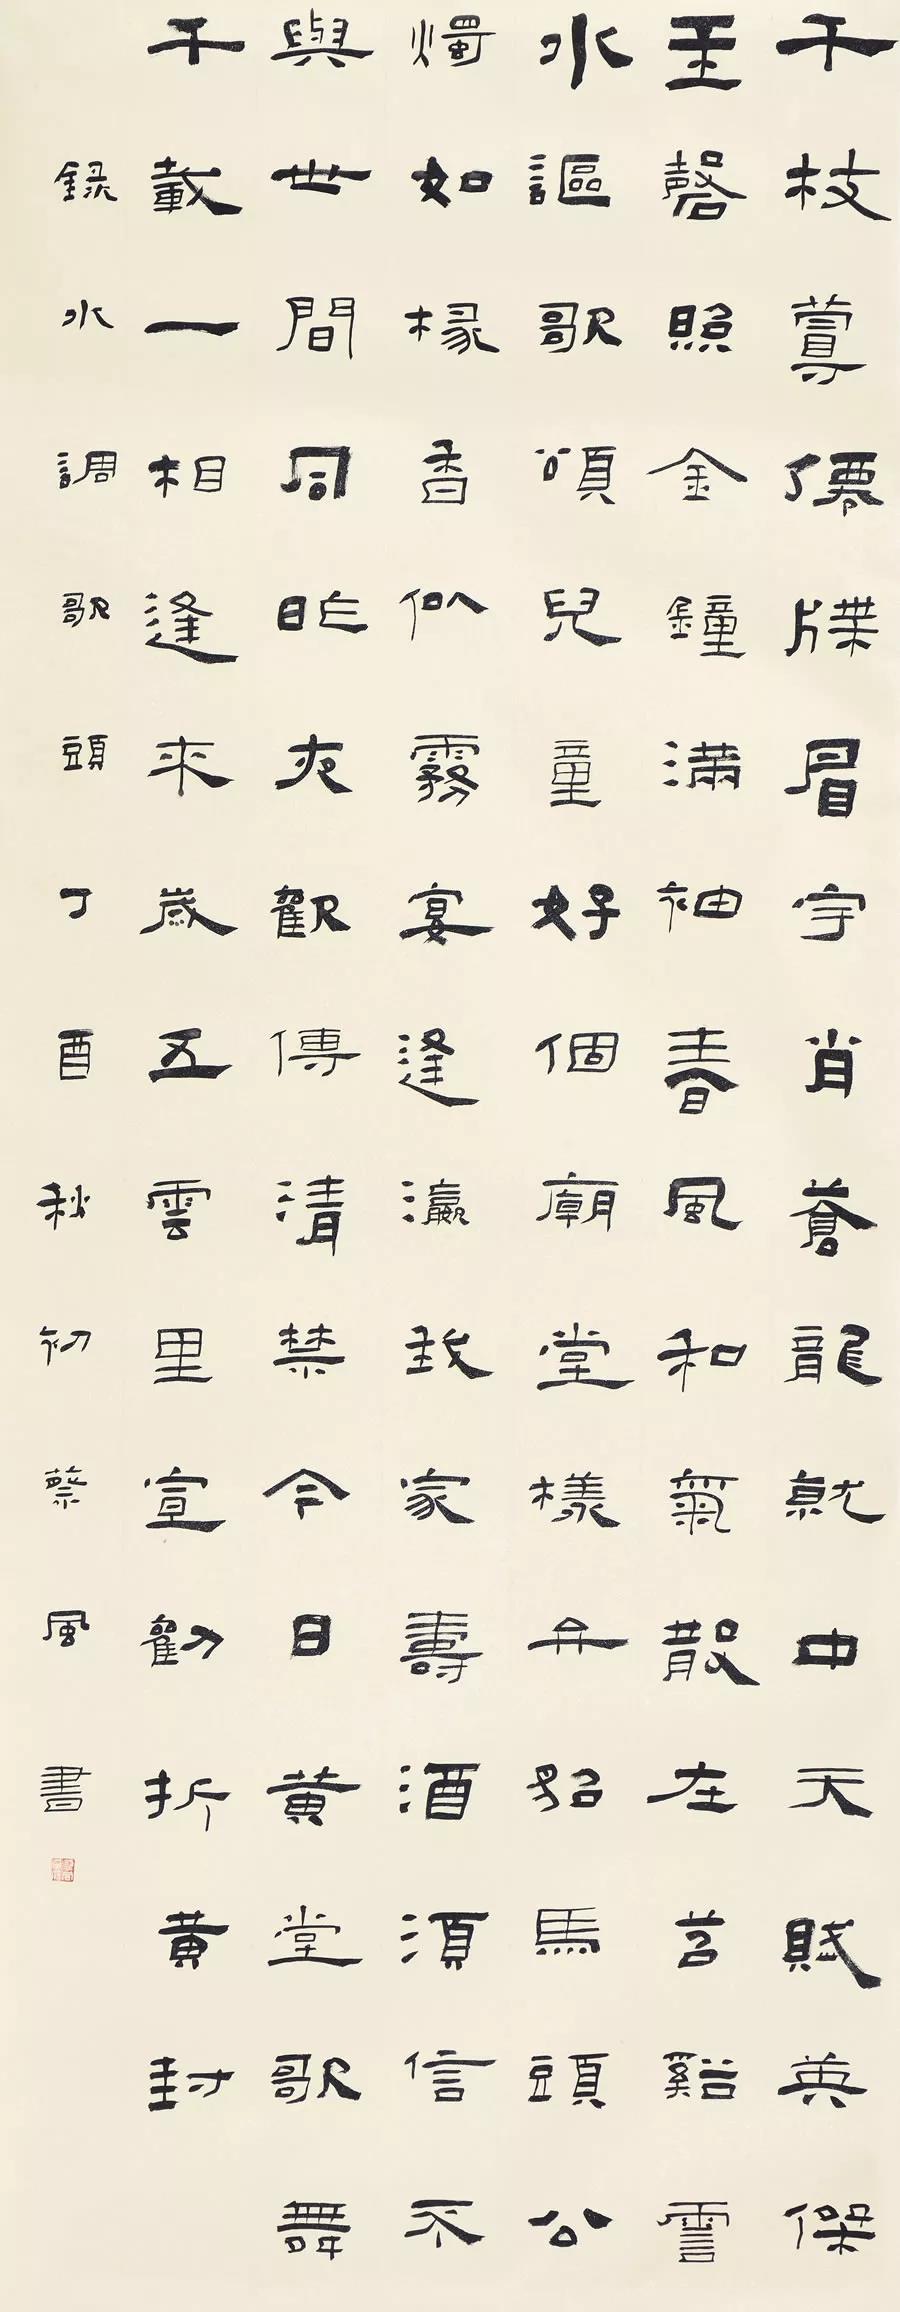 千枝蕚僊牒眉宇肖蒼龍就中天賦英傑
玉磬照金鐘滿袖春風和氣散在苕谿霅
水謳歌頌兒童好個廟堂樣弁貂馬頭公
燭如椽香似霧宴逢瀛我家壽酒須信不
與世間同昨夜歡傳清禁今日黃堂歌舞
千載一相逢來歲五雲里宣勸折黃封
録水調歌頭丁酉秋初蔡風書